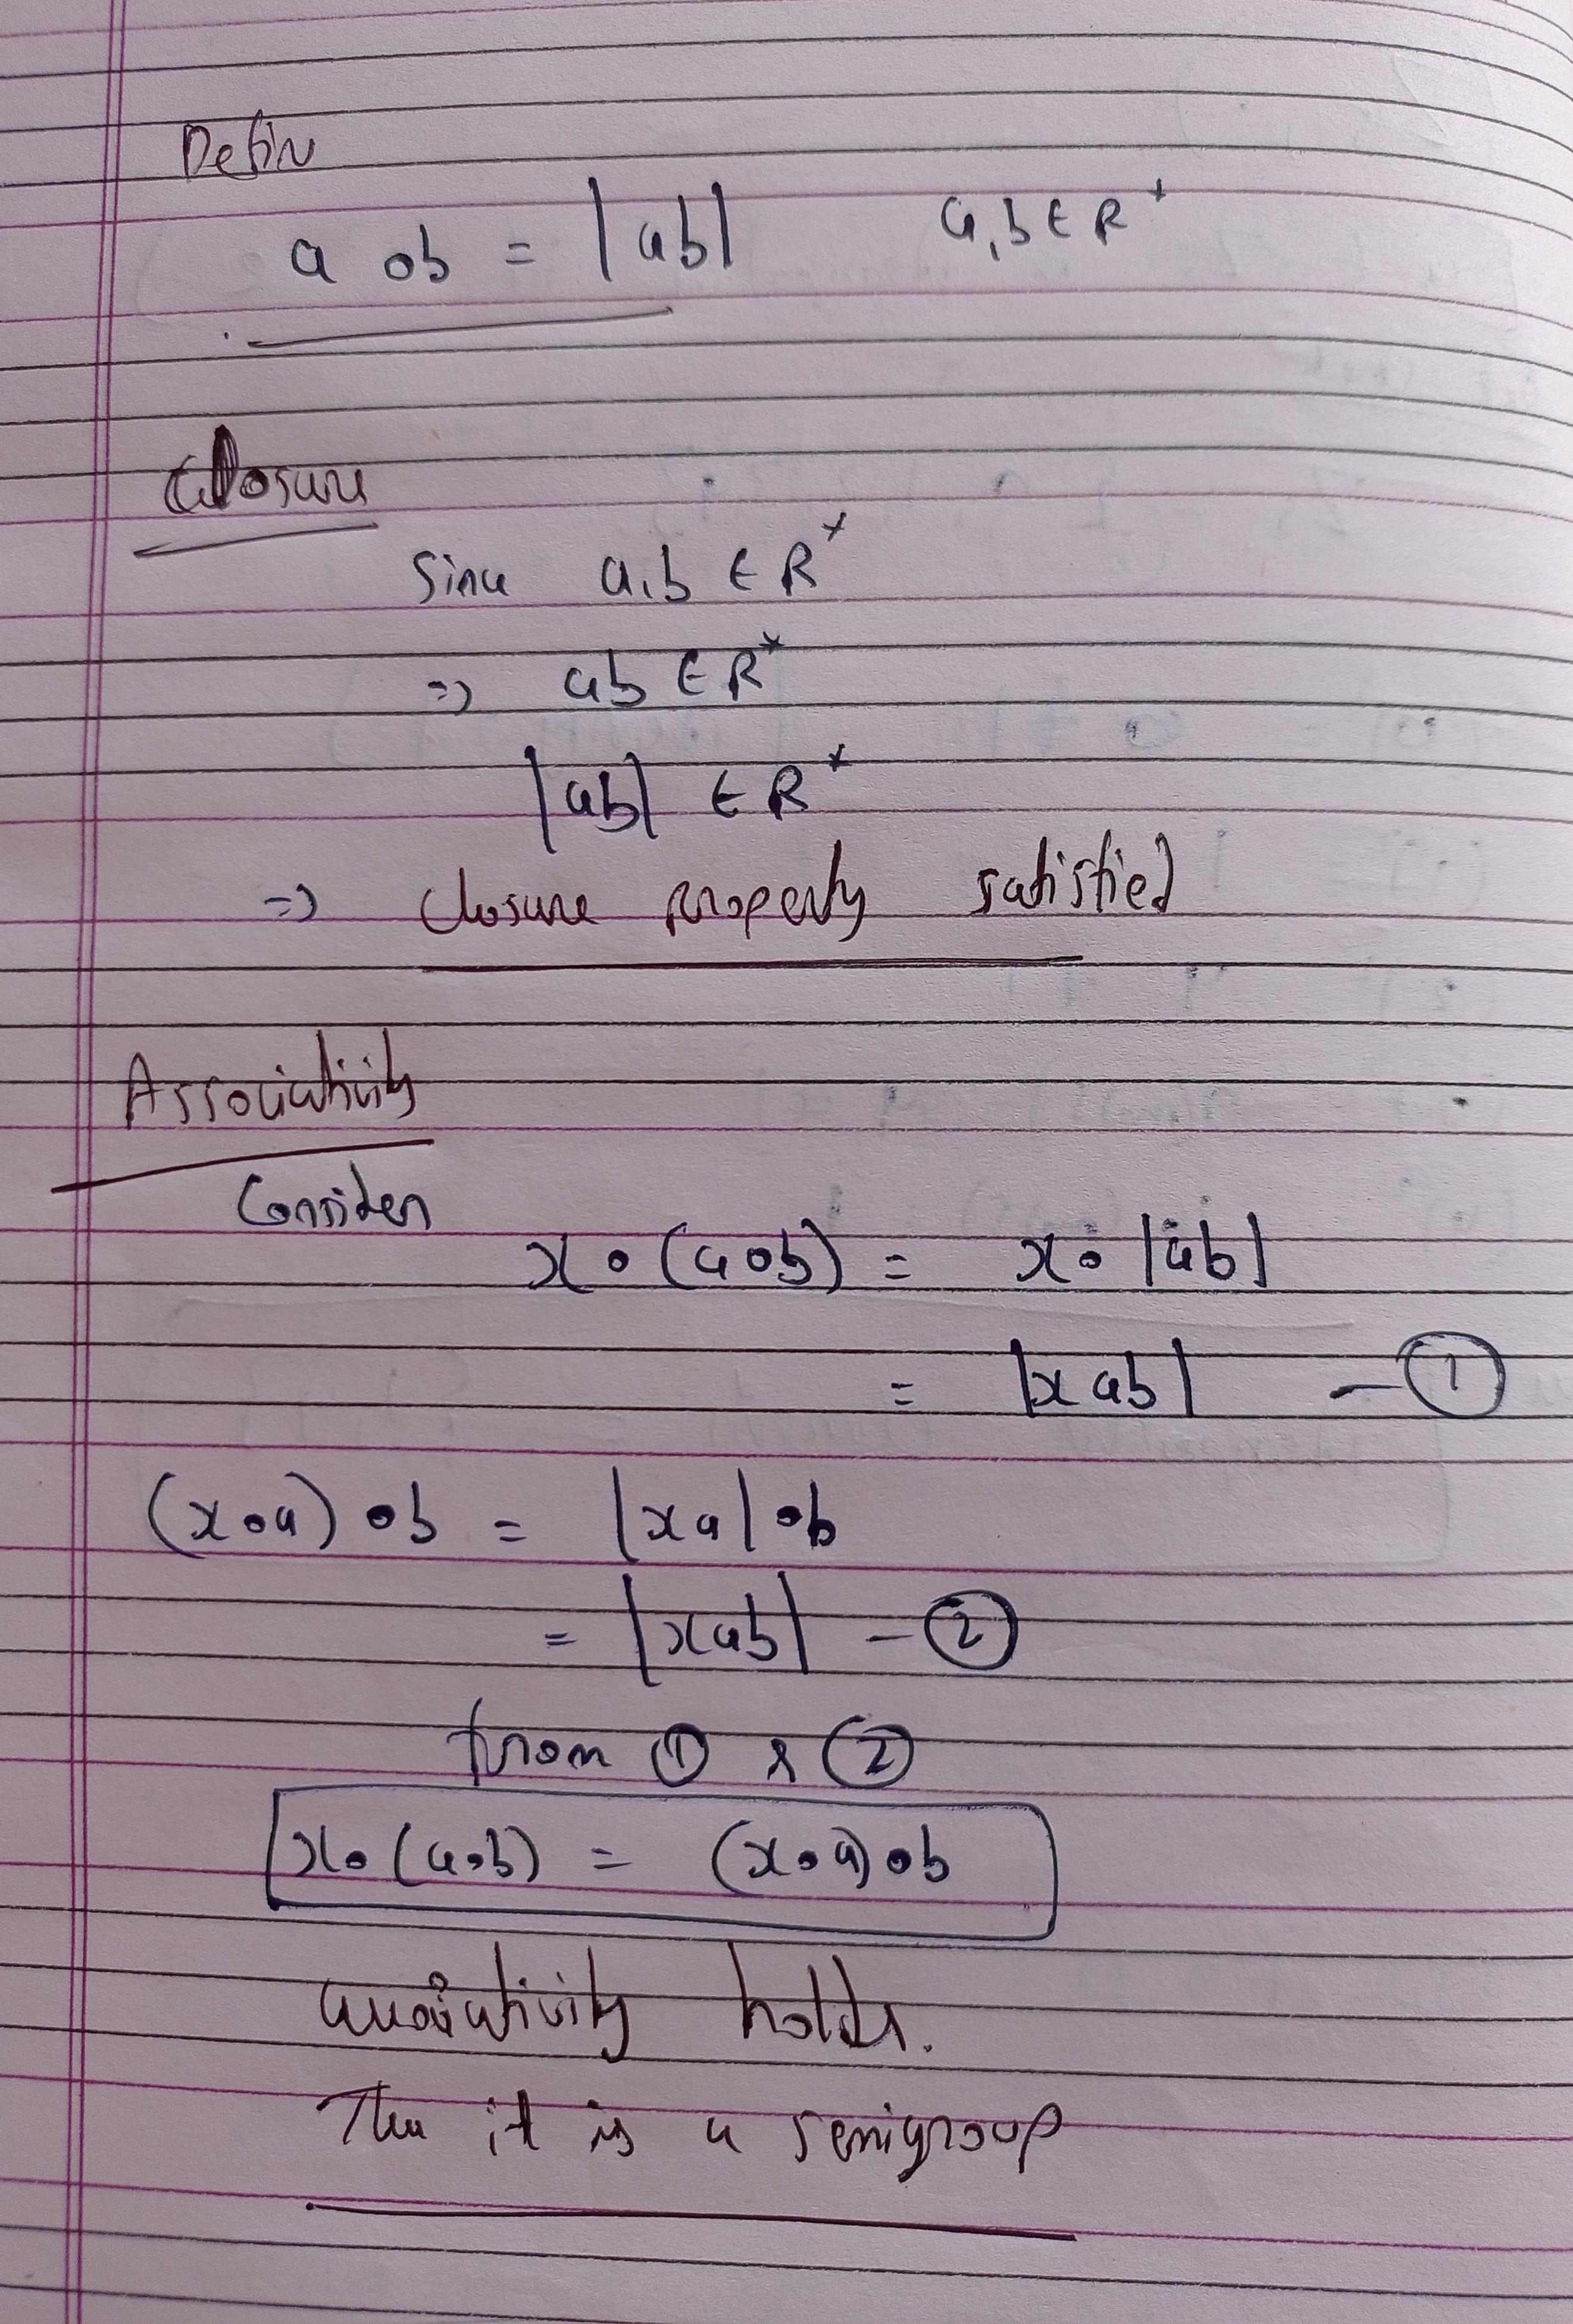 Define
a o b = |ab|    a, b ∈ R⁺
Closure
Since a, b ∈ R*
=> ab ∈ R*
|ab| ∈ R*
=> closure property satisfied
Associativity
Consider
x o (a o b) = x o |ab|
= |x ab| - ①
(x o a) o b = |xa| o b
= |xab| - ②
from ① & ②
x o (a o b) = (x o a) o b
associativity holds.
Then it is a semigroup